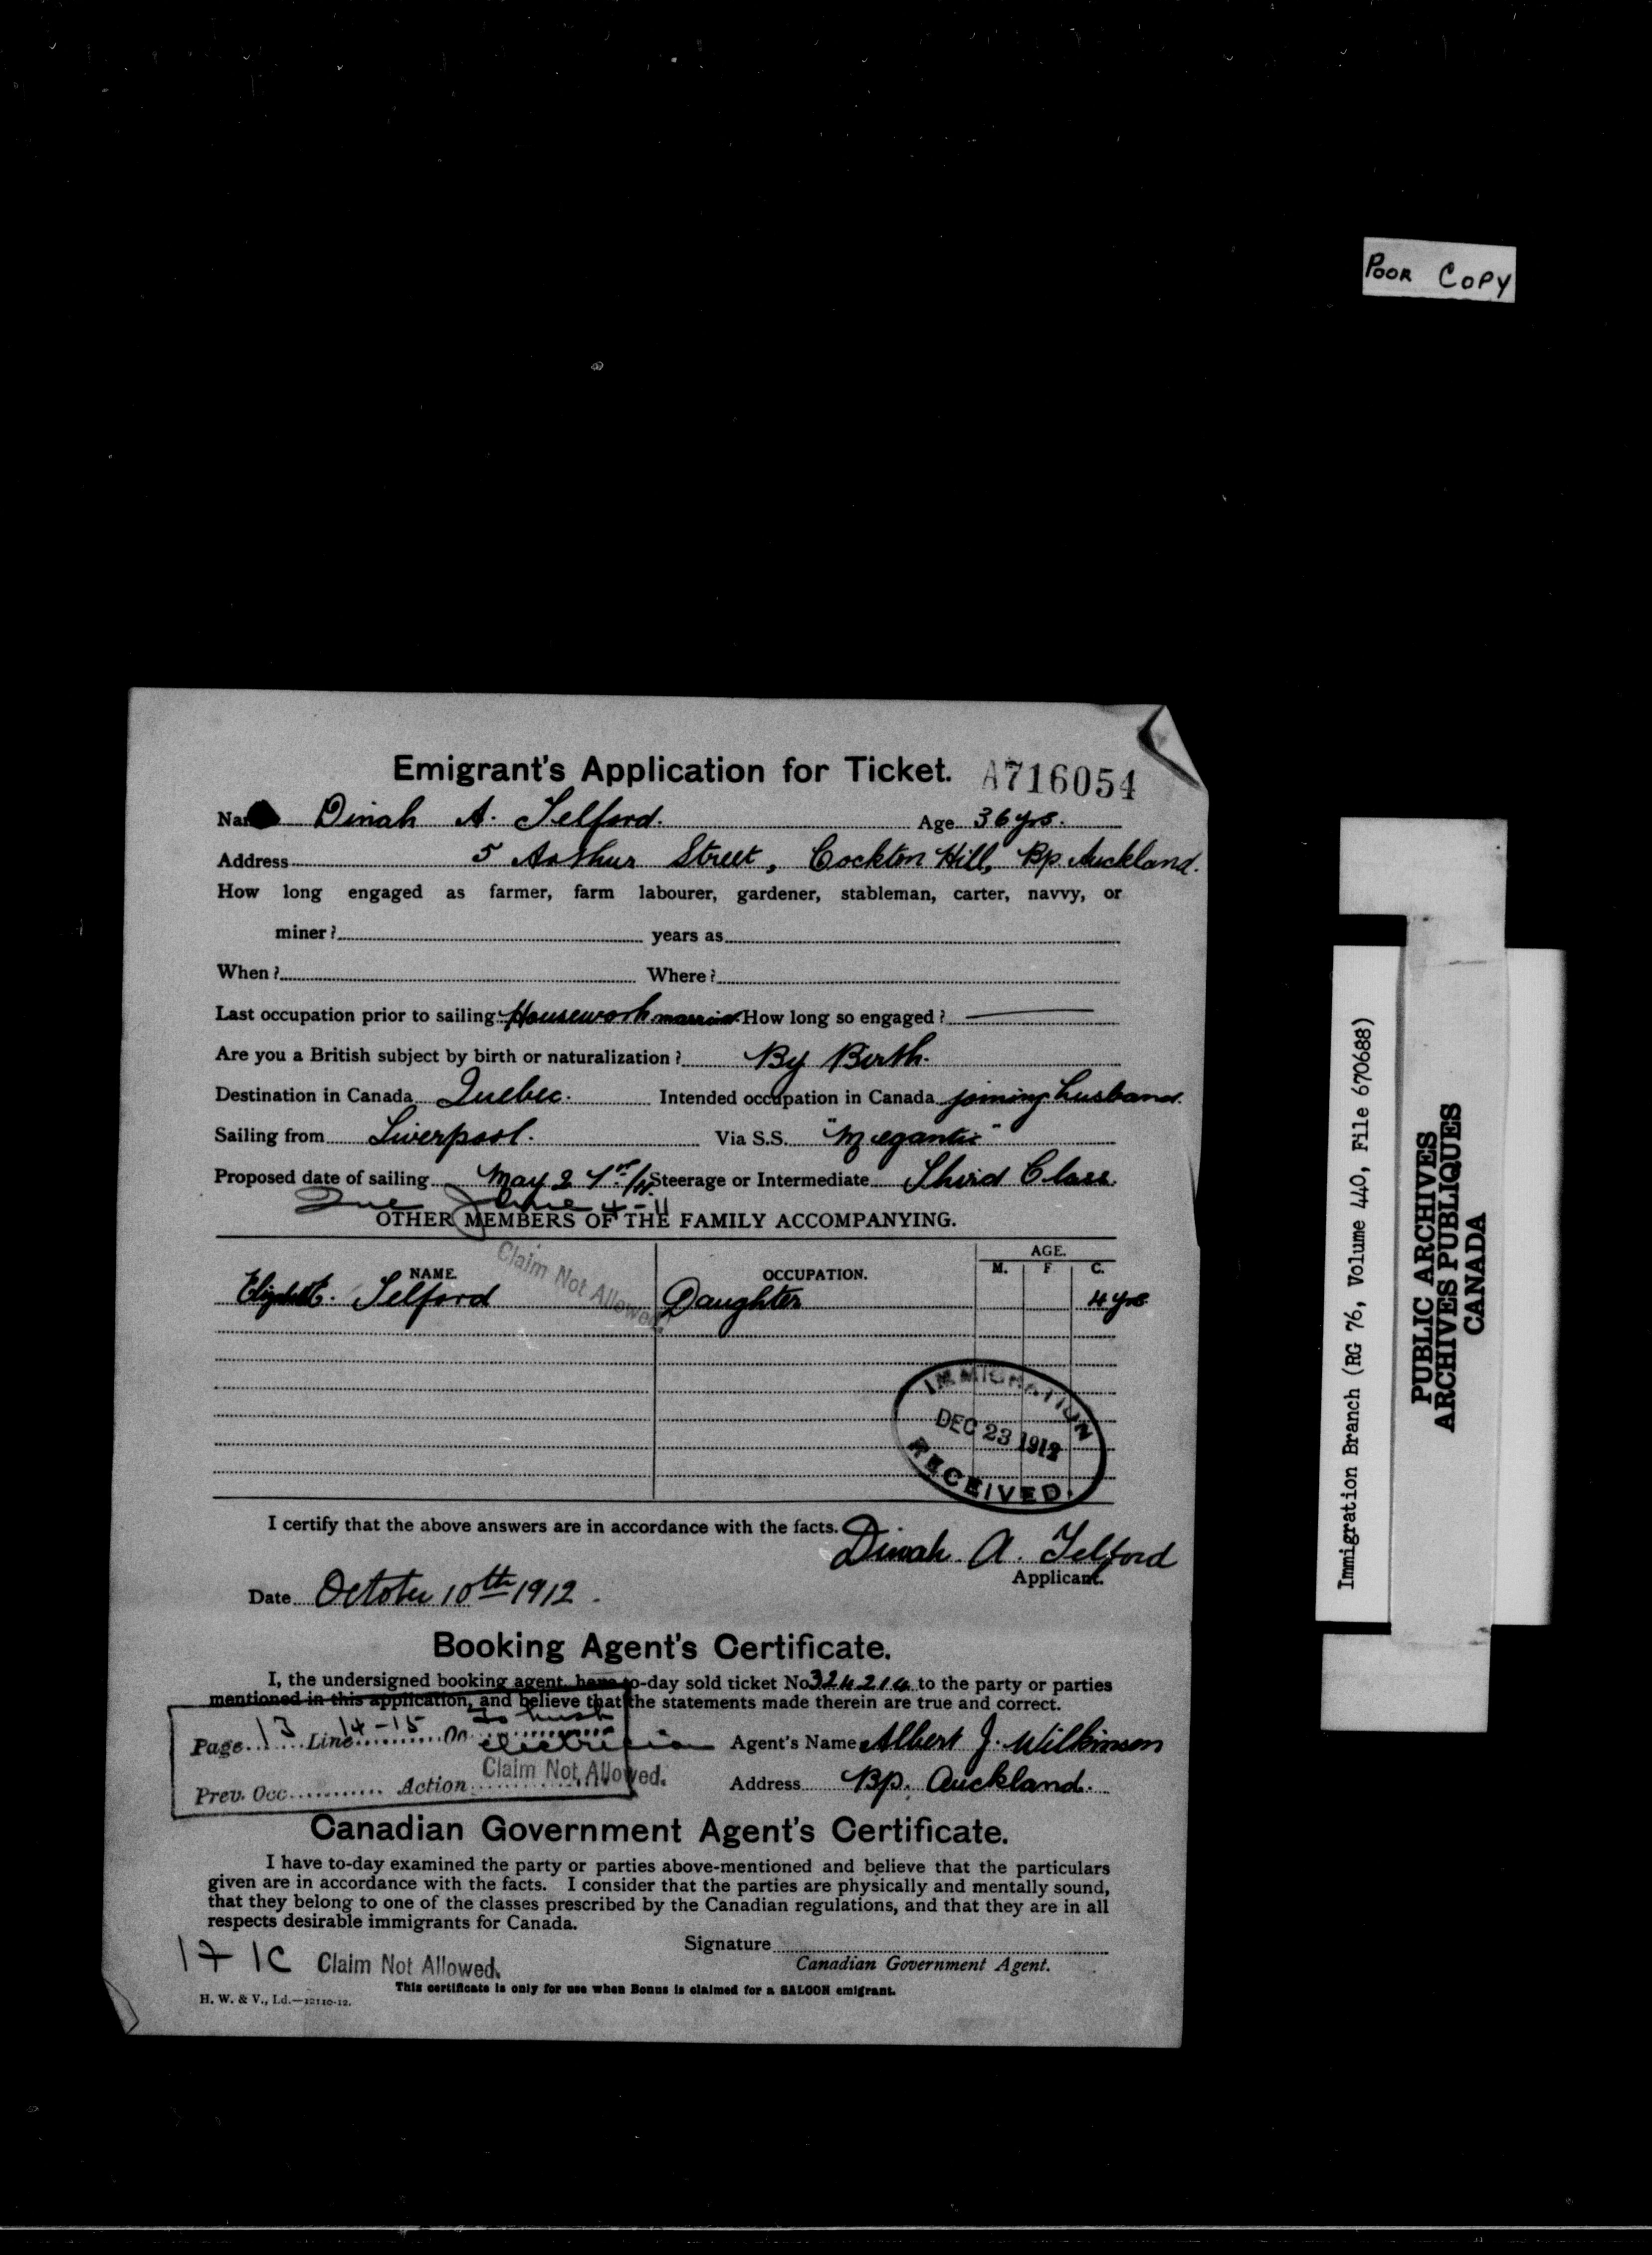 POOR COPY
Emigrant's Application for Ticket. A716054
Na Dinah A. Telford. Age 36 yrs.
Address 5 Arthur Street, Cockton Hill, Bp. Auckland.
How long engaged as farmer, farm labourer, gardener, stableman, carter, navvy, or
miner? years as
When? Where?
Last occupation prior to sailing Housework married How long so engaged?
Are you a British subject by birth or naturalization? By Birth.
Destination in Canada Quebec. Intended occupation in Canada joining husband.
Sailing from Liverpool. Via S.S. "Megantic"
Proposed date of sailing May 27th/11. Steerage or Intermediate Third Class.
Due June 4-11
OTHER MEMBERS OF THE FAMILY ACCOMPANYING.
NAME. OCCUPATION. AGE. M. F. C.
Claim Not Allowed.
Elizabeth. Telford Daughter 4 yrs
IMMIGRATION
DEC 23 1912
RECEIVED.
I certify that the above answers are in accordance with the facts.
Dinah. A. Telford
Applicant.
Date October 10th 1912.
Booking Agent's Certificate.
I, the undersigned booking agent, have to-day sold ticket No 324214 to the party or parties
mentioned in this application, and believe that the statements made therein are true and correct.
to husb
Page 13 Line 14-15 Oc electrician
Prev. Occ Action Claim Not Allowed.
Agent's Name Albert J. Wilkinson
Address Bp. Auckland.
Canadian Government Agent's Certificate.
I have to-day examined the party or parties above-mentioned and believe that the particulars
given are in accordance with the facts. I consider that the parties are physically and mentally sound,
that they belong to one of the classes prescribed by the Canadian regulations, and that they are in all
respects desirable immigrants for Canada.
Signature
Canadian Government Agent.
1F 1C Claim Not Allowed.
This certificate is only for use when Bonus is claimed for a SALOON emigrant.
H. W. & V., Ld.—12110-12.
Immigration Branch (RG 76, Volume 440, File 670688)
PUBLIC ARCHIVES
ARCHIVES PUBLIQUES
CANADA